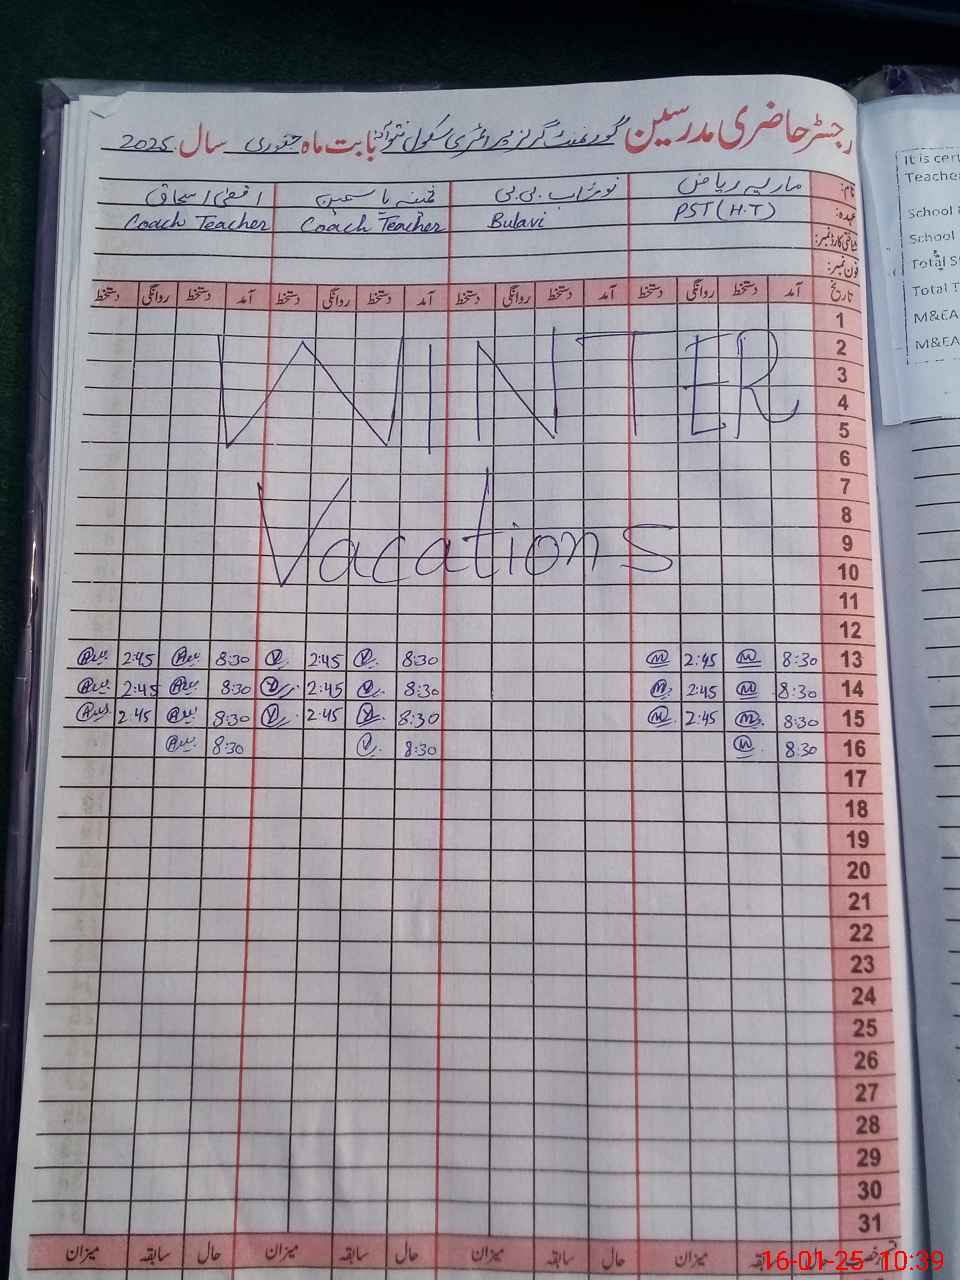 رجسٹر حاضری مدرسین گورنمنٹ گرلز پرائمری سکول بابت ماہ جنوری سال 2025
نام: ماریہ ریاض نوراب بی بی یاسمین اقصیٰ اسحاق
عہدہ: PST (H.T) Bulavi Coach Teacher Coach Teacher
شناختی کارڈ نمبر:
فون نمبر:
تاریخ آمد دستخط روانگی دستخط آمد دستخط روانگی دستخط آمد دستخط روانگی دستخط آمد دستخط روانگی دستخط
1
2
3
4
5
WINTER
6
7
8
9
10
Vacations
11
12
13 8:30 M 2:45 M 8:30 Y 2:45 Y 8:30 2:45
14 8:30 M 2:45 M 8:30 Y 2:45 Y 8:30 2:45
15 8:30 M 2:45 M 8:30 Y 2:45 Y 8:30 2:45
16 8:30 M 8:30 Y 8:30
17
18
19
20
21
22
23
24
25
26
27
28
29
30
31
حال سابقہ میزان حال سابقہ میزان حال سابقہ میزان حال سابقہ میزان
It is cer
Teache
School
School
Total S
Total T
M&EA
M&EA
16-01-25 10:39